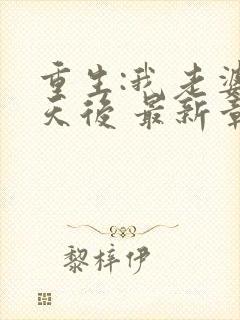 重生:我老婆
天后 最新章
黎梓伊